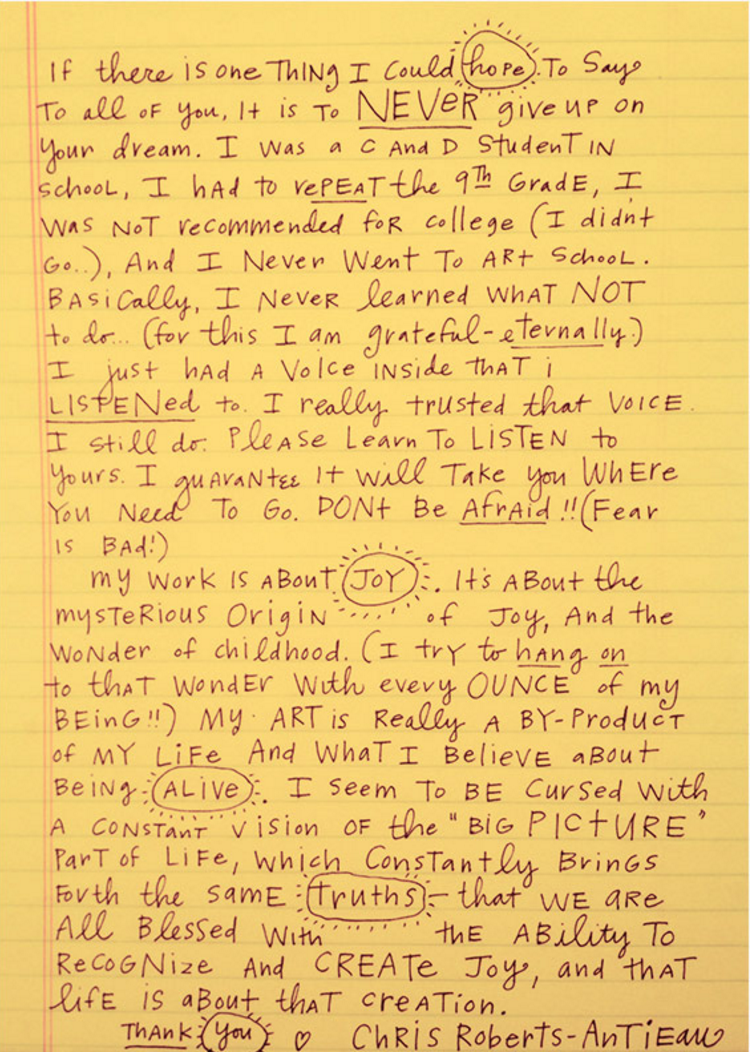 If there is one Thing I Could hope To Say
To all of You, It is To NEVER give up on
Your dream. I was a C And D Student IN
School, I hAd to rePEAT the 9Th GradE, I
WAS NOT recommended foR college (I didnt
Go..), And I Never Went To ARt School.
BASiCally, I NeveR learned WHAT NOT
to do... (for this I am grateful-eternally.)
I just hAd A Voice INSide thAT i
LISTENed to. I really trusted that VOICE.
I still do. PleASe Learn To LISTEN to
Yours. I guArANtEE It will Take you WhEre
You Need To Go. DONt Be AfrAid!! (Fear
is BAd!)
My Work is ABout JOY. It's ABout the
mysTeRious Origin of Joy, And the
WoNder of childhood. (I try to hANg on
to thAT WondEr With every OUNCE of my
BEing!!) My ART is Really A BY-ProducT
of MY LiFe And WhaT I Believe aBout
Being ALive. I SEEM To BE Cursed with
A CONSTANT Vision OF the "BIG PICtURE"
Part of LiFe, which ConsTantly Brings
Forth the samE Truths - that WE aRe
All Blessed With thE ABility To
ReCoGNize And CREATe Joy, and thAT
lifE is aBout thAT creATion.
Thank You ♡ ChRis RobertS-AnTiEau